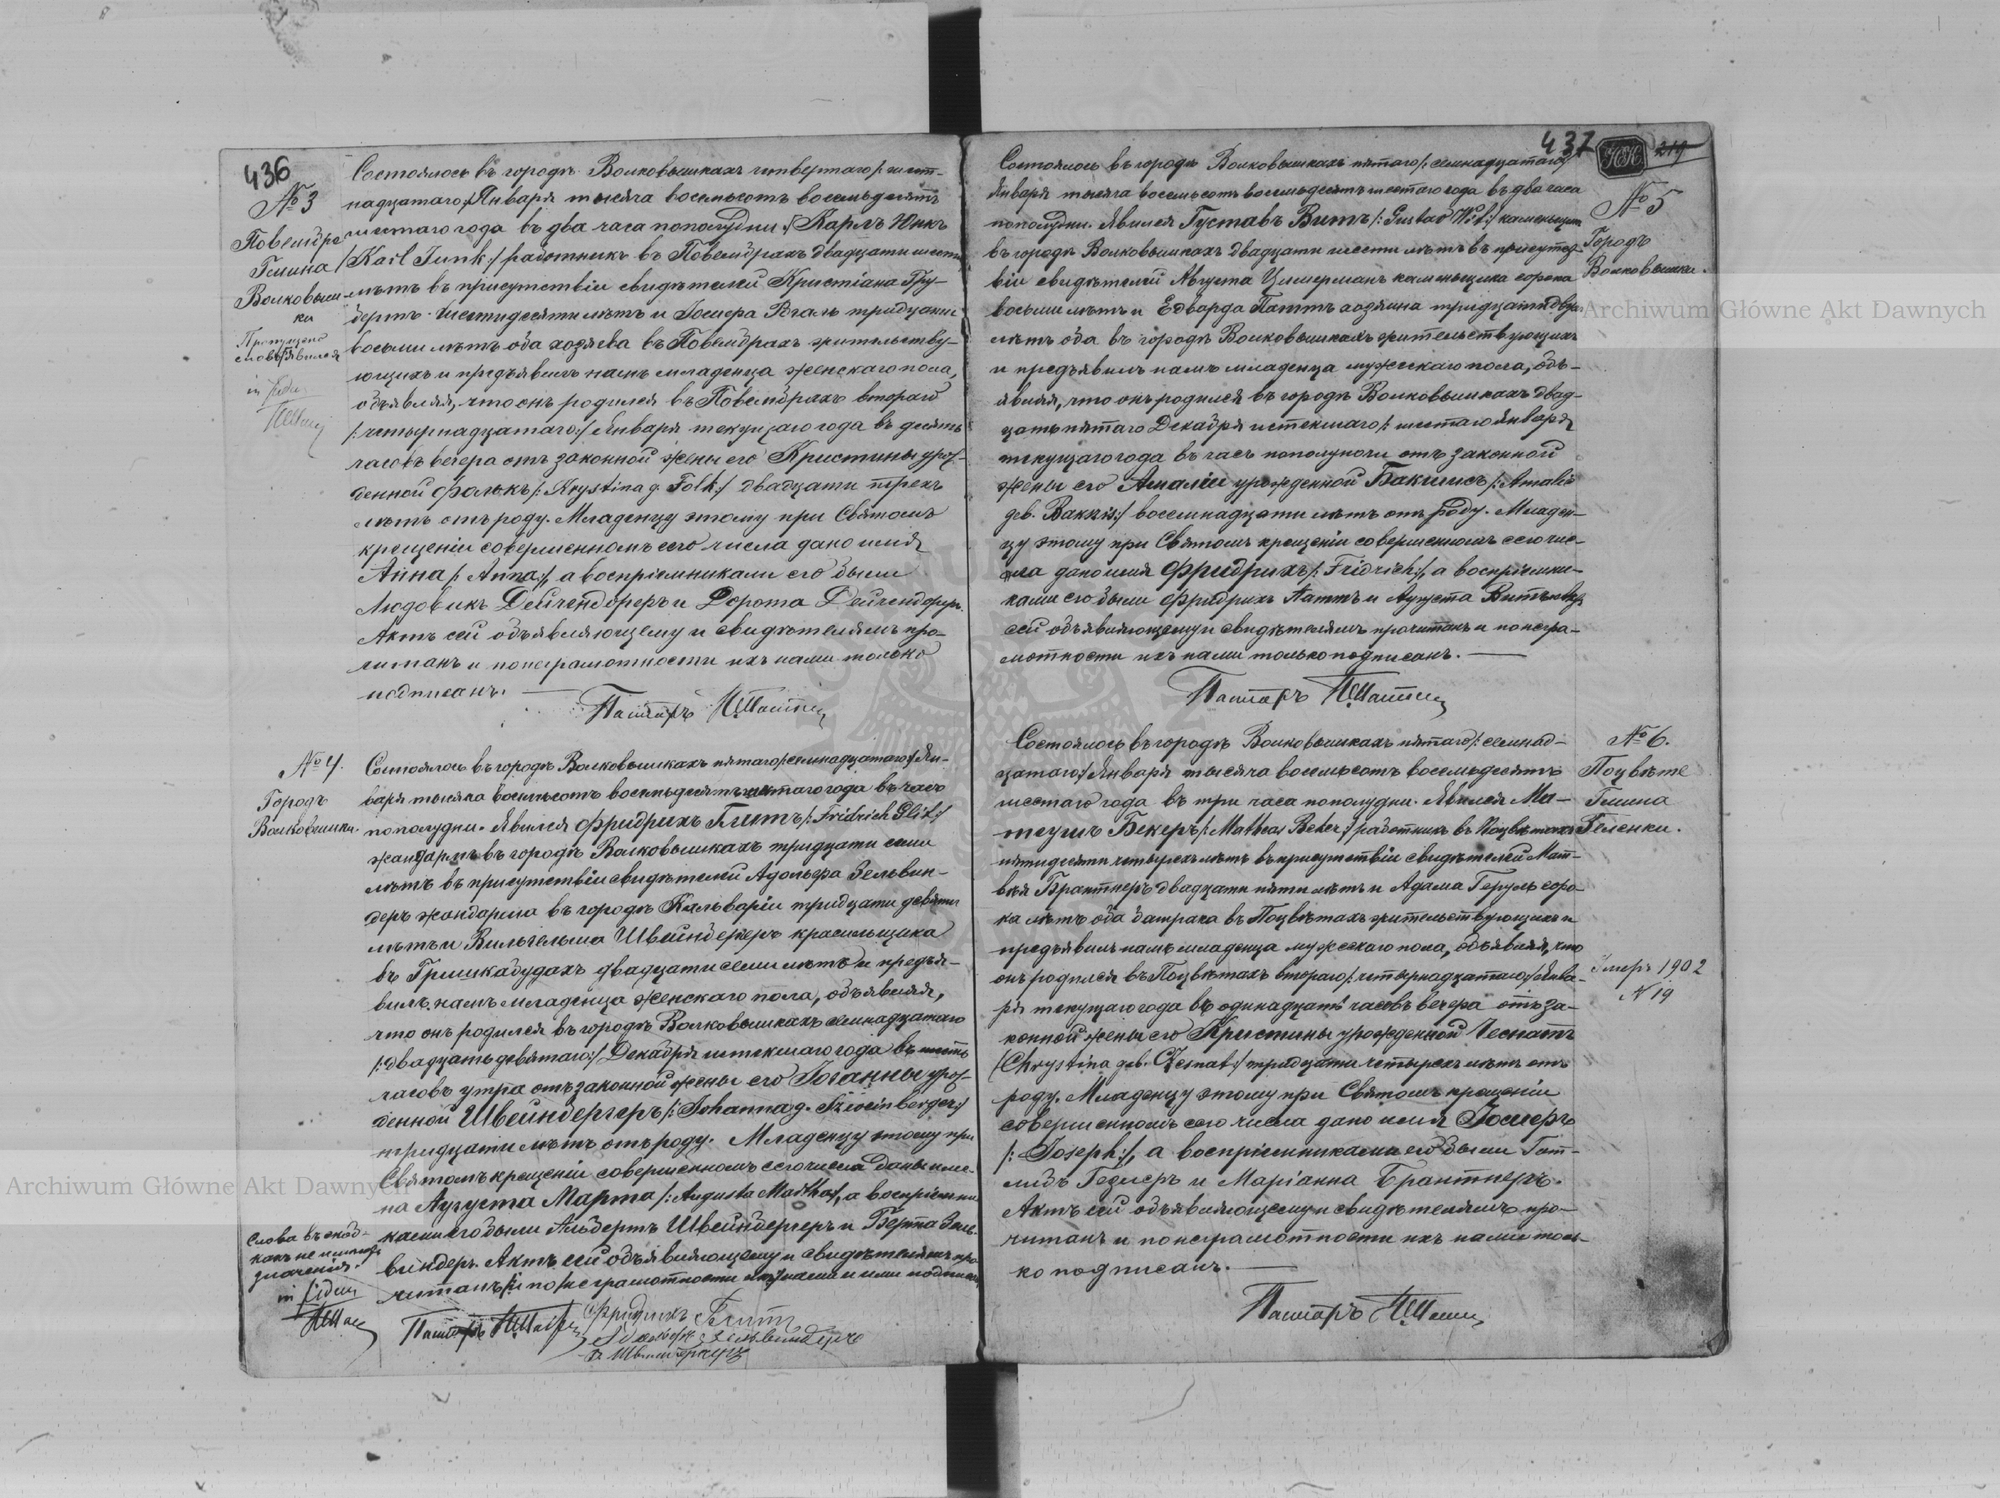 436
№ 3
Повемдре
Гмина
Волковыш-
ки
Пропущено
слово: Явился
Состоялось въ городѣ Волковышкахъ четвертаго /: шест-
надцатаго :/ Января тысяча восемьсотъ восемьдесятъ
шестаго года въ два часа пополудни :/ Карлъ Юнкъ
/ Karl Junk :/ работникъ въ Повемдрахъ двадцати шести
лѣтъ въ присутствіи свидѣтелей Кристіана Гру-
бертъ шестидесяти лѣтъ и Іосифа Рогаль тридцати
восьми лѣтъ оба хозяева въ Повемдрахъ жительству-
ющихъ и предъявилъ намъ младенца женскаго пола,
объявляя, что онъ родился въ Повемдрахъ втораго
/: четырнадцатаго :/ Января текущаго года въ десять
часовъ вечера отъ законной жены его Кристины урож-
денной Фолькъ /: Krystina g. Folk :/ двадцати трехъ
лѣтъ отъ роду. Младенцу этому при Святомъ
крещеніи совершенномъ сего числа дано имя
Анна /: Anna :/, а воспріемниками его были
Людовикъ Дейчендорферъ и Дорота Дейчендорферъ.
Актъ сей объявляющему и свидѣтелямъ про-
читанъ и по неграмотности ихъ нами только
подписанъ.
Пасторъ
№ 4.
Городъ
Волковышки.
Состоялось въ городѣ Волковышкахъ пятаго /: семнадцатаго :/ Ян-
варя тысяча восемьсотъ восемьдесятъ шестаго года въ часъ
пополудни. Явился Фридрихъ Глитъ /: Fridrich Glit :/
жандармъ въ городѣ Волковышкахъ тридцати семи
лѣтъ въ присутствіи свидѣтелей Адольфа Зельвин-
деръ жандарма въ городѣ Кальваріи тридцати девяти
лѣтъ и Вильгельма Швейнбергеръ красильщика
въ Гришкабудахъ двадцати семи лѣтъ и предъя-
вилъ намъ младенца женскаго пола, объявляя,
что онъ родился въ городѣ Волковышкахъ семнадцатаго
/: двадцать девятаго :/ Декабря истекшаго года въ шесть
часовъ утра отъ законной жены его Іоганны урож-
денной Швейнбергеръ /: Johanna g. Szweinberger :/
тридцати лѣтъ отъ роду. Младенцу этому при
Святомъ крещеніи совершенномъ сего числа даны име-
на Августа Марта /: Augusta Martha :/, а воспріемни-
ками его были Альбертъ Швейнбергеръ и Берта Зель-
виндеръ. Актъ сей объявляющему и свидѣтелямъ про-
читанъ по неграмотности нами и ими подписанъ
Слова въ скоб-
кахъ не имеютъ
значенія.
Пасторъ
Фридрихъ Глитъ
437
219
№ 5
Городъ
Волковышки.
Состоялось въ городѣ Волковышкахъ пятаго /: семнадцатаго :/
Января тысяча восемьсотъ восемьдесятъ шестаго года въ два часа
пополудни. Явился Густавъ Витъ /: Gustav Wit :/ каменьщикъ
въ городѣ Волковышкахъ двадцати шести лѣтъ въ присутст-
віи свидѣтелей Августа Цимерманъ каменьщика сорока
восьми лѣтъ и Едварда Паттъ хозяина тридцати двухъ
лѣтъ оба въ городѣ Волковышкахъ жительствующихъ
и предъявилъ намъ младенца мужескаго пола, объ-
являя, что онъ родился въ городѣ Волковышкахъ двад-
цать пятаго Декабря истекшаго /: шестаго Января
текущаго года въ часъ пополуночи отъ законной
жены его Амаліи урожденной Бакшисъ /: Amalie
geb. Bakszis :/ восемнадцати лѣтъ отъ роду. Младен-
цу этому при Святомъ крещеніи совершенномъ сего чис-
ла дано имя Фридрихъ /: Fridrich :/, а воспріемни-
ками его были Фридрихъ Паттъ и Августа Витъ. Актъ
сей объявляющему и свидѣтелямъ прочитанъ и по негра-
мотности ихъ нами только подписанъ.
Пасторъ
№ 6.
Поцвѣте
Гмина
Геленки.
Умеръ 1902
№ 19
Состоялось въ городѣ Волковышкахъ пятаго /: семнад-
цатаго :/ Января тысяча восемьсотъ восемьдесятъ
шестаго года въ три часа пополудни. Явился Ма-
теушъ Бекеръ /: Matheas Beker :/ работникъ въ Поцвѣтахъ
пятидесяти четырехъ лѣтъ въ присутствіи свидѣтелей Мат-
вѣя Брантнеръ двадцати пяти лѣтъ и Адама Геруль соро-
ка лѣтъ оба батрака въ Поцвѣтахъ жительствующихъ и
предъявилъ намъ младенца мужескаго пола, объявляя, что
онъ родился въ Поцвѣтахъ втораго /: четырнадцатаго :/ Янва-
ря текущаго года въ одинадцать часовъ вечера отъ за-
конной жены его Кристины урожденной Чеснатъ
/ Chrystina geb. Czesnat :/ тридцати четырехъ лѣтъ отъ
роду. Младенцу этому при Святомъ крещеніи
совершенномъ сего числа дано имя Іосифъ
/: Joseph :/, а воспріемниками его были Гот-
лидъ Гезлеръ и Маріанна Брантнеръ.
Актъ сей объявляющему и свидѣтелямъ про-
читанъ и по неграмотности ихъ нами толь-
ко подписанъ.
Пасторъ
Archiwum Główne Akt Dawnych
Archiwum Główne Akt Dawnych